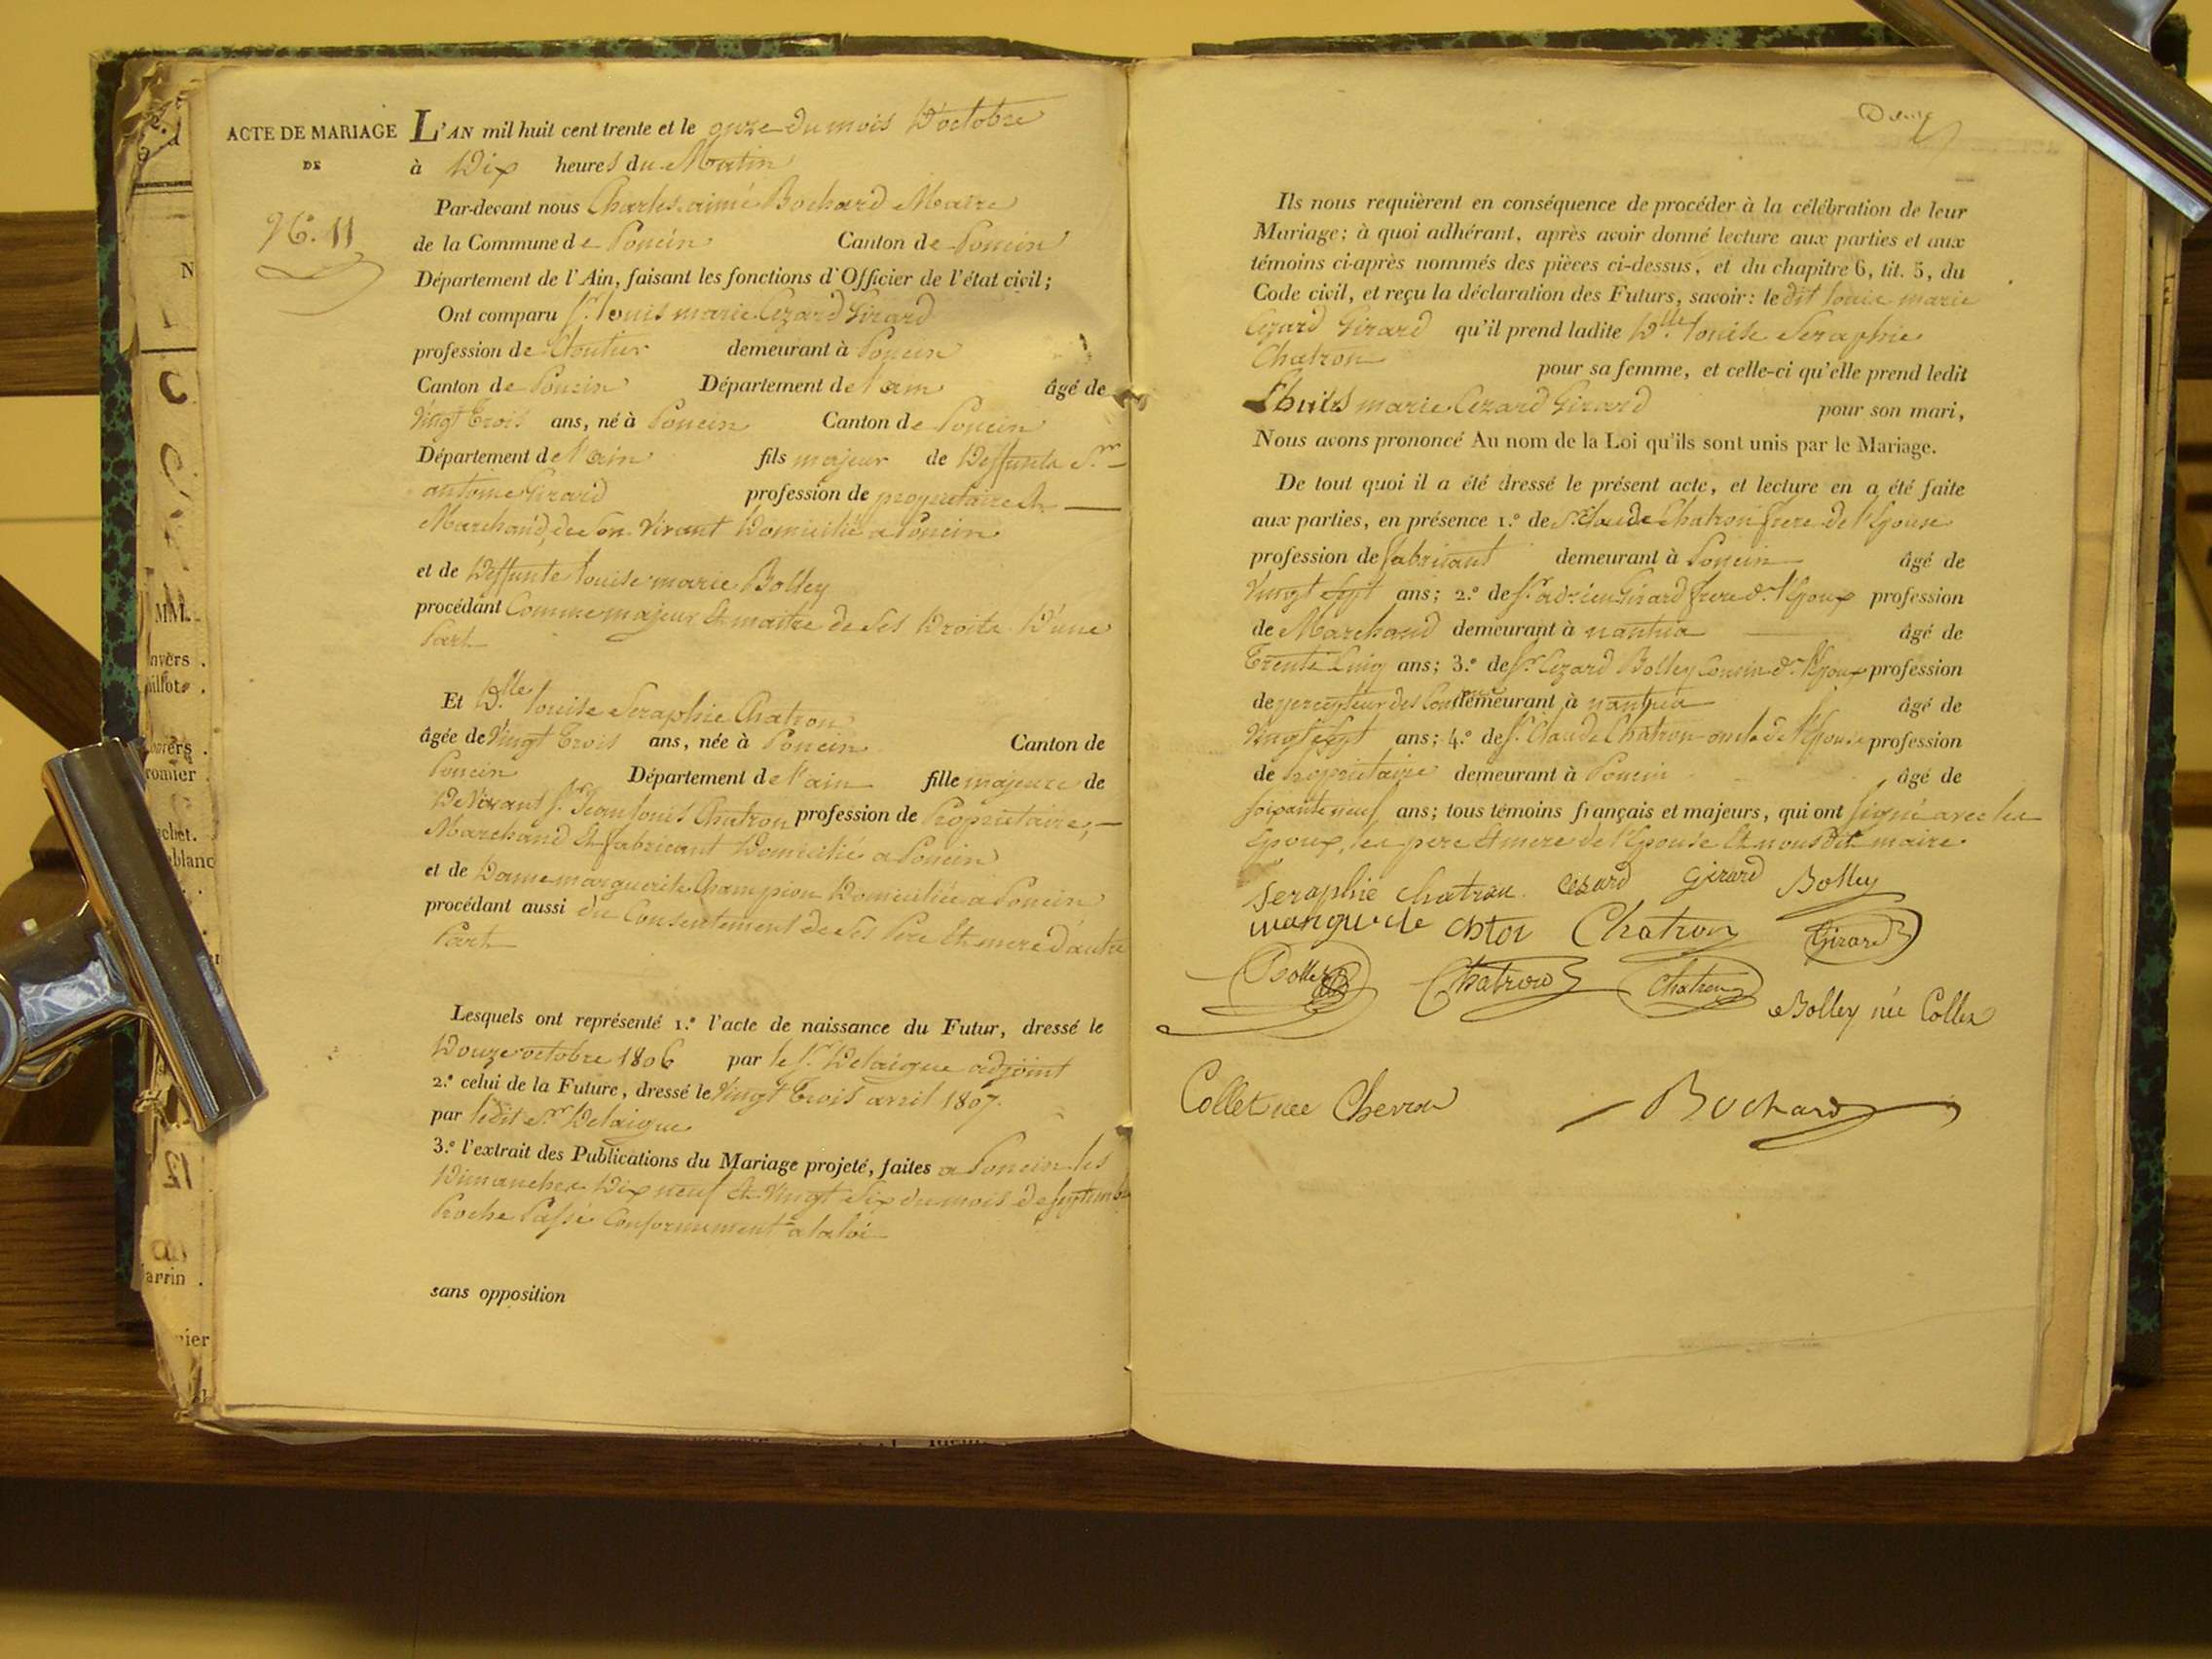 ACTE DE MARIAGE
DE
N.° 11
L'AN mil huit cent trente et le onze du mois D'octobre
à Dix heures du Matin
Par-devant nous Charles aimé Bochard Maire
de la Commune de Poncin Canton de Poncin
Département de l'Ain, faisant les fonctions d'Officier de l'état civil;
Ont comparu Sr. Louis marie Cezard Girard
profession de Cloutier demeurant à Poncin
Canton de Poncin Département de l'ain âgé de
Vingt Trois ans, né à Poncin Canton de Poncin
Département de l'ain fils majeur de Deffunts Sr.
antoine Girard profession de propriétaire Et
Marchand, de Son Vivant Domicilié a Poncin
et de Deffunte Louise marie Bolley
procédant Comme majeur Et maitre de Ses Droits D'une
Part
Et Dlle. Louise Seraphie Chatron
âgée de Vingt Trois ans, née à Poncin Canton de
Poncin Département de l'ain fille majeure de
De Vivant Sr. Jean Louis Chatron profession de Propriétaire,
Marchand Et fabricant Domicilié a Poncin
et de Dame marguerite Champion Domiciliée a Poncin
procédant aussi du Consentement de Ses Pere Et mere D'autre
Part
Lesquels ont représenté 1.° l'acte de naissance du Futur, dressé le
Douze octobre 1806 par le Sr. Delaigue adjoint
2.° celui de la Future, dressé le Vingt Trois avril 1807.
par ledit Sr. Delaigue
3.° l'extrait des Publications du Mariage projeté, faites a Poncin les
Dimanches Dix neuf Et Vingt Six du mois de Septembre
Proche Passé Conformement a la loi
sans opposition
Ils nous requièrent en conséquence de procéder à la célébration de leur
Mariage; à quoi adhérant, après avoir donné lecture aux parties et aux
témoins ci-après nommés des pièces ci-dessus, et du chapitre 6, tit. 5, du
Code civil, et reçu la déclaration des Futurs, savoir: le dit Louis marie
Cezard Girard qu'il prend ladite Dlle. Louise Seraphie
Chatron pour sa femme, et celle-ci qu'elle prend ledit
Louis marie Cezard Girard pour son mari,
Nous avons prononcé Au nom de la Loi qu'ils sont unis par le Mariage.
De tout quoi il a été dressé le présent acte, et lecture en a été faite
aux parties, en présence 1.° de Sr. Claude Chatron frere de l'Epouse
profession de fabricant demeurant à Poncin âgé de
Vingt Sept ans; 2.° de Sr. adrien Girard frere de l'Epoux profession
de Marchand demeurant à nantua âgé de
Trente Cinq ans; 3.° de Sr. Cezard Bolley Cousin de l'Epoux profession
de percepteur des demeurant à nantua âgé de
Vingt Sept ans; 4.° de Sr. Claude Chatron oncle de l'Epouse profession
de Propriétaire demeurant à Poncin âgé de
Soixante neuf ans; tous témoins français et majeurs, qui ont Signé avec les
Epoux, les pere Et mere de l'Epouse Et nous Dit maire
Seraphie Chatron Césard Girard Bolley
Chatron Girard
Bolley Chatron Chatron
Bolley née Collet
Collet née Chevron Bochard